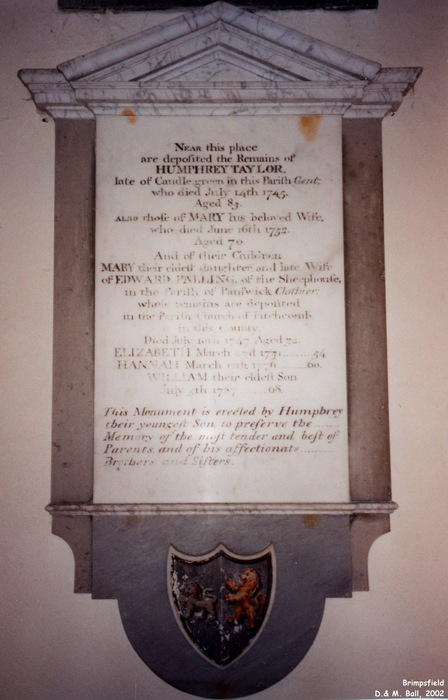 NEAR this place
are depoſited the Remains of
HUMPHREY TAYLOR,
late of Caudle green in this Pariſh Gent;
who died July 14th 1745.
Aged 83.
ALSO thoſe of MARY his beloved Wife,
who died June 16th 1732.
Aged 70.
And of their Children
MARY their eldeſt daughter and late Wife
of EDWARD PALLING, of the Sheephouſe,
in the Pariſh of Painſwick Clothier;
whoſe remains are depoſited
in the Pariſh Church of Pitchcomb
in this County.
Died July 1747 Aged
ELIZABETH March 1771 54
HANNAH March 1776 60.
WILLIAM their eldeſt Son
July 4th 1787 68.
This Monument is erected by Humphrey
their youngeſt Son, to preſerve the
Memory of the moſt tender and beſt of
Parents, and of his affectionate
Brothers and Siſters.
Brimpsfield
D.& M. Ball, 2002